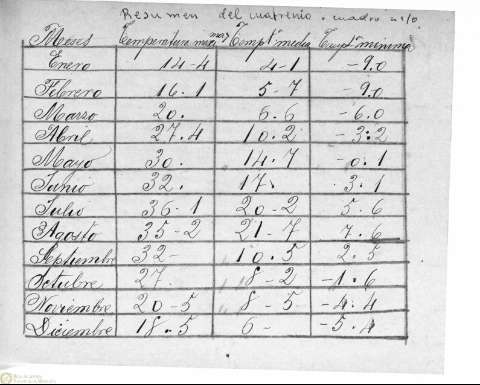 Resumen del cuatrenio. cuadro nº10.
Meses Temperatura max Tempª media Tempª minima
Enero 14-4 4-1 -9.0
Febrero 16.1 5-7 -9.0
Marzo 20. 6.6 -6.0
Abril 27.4 10.2 -3:2
Mayo 30. 14.7 -0.1
Junio 32. 17. 3.1
Julio 36-1 20-2 5.6
Agosto 35-2 21-7 7.6
Septiembre 32- 10.5 2.5
Octubre 27. 8-2 -1.6
Noviembre 20-5 8-5 -4:4
Diciembre 18.5 6- -5.4